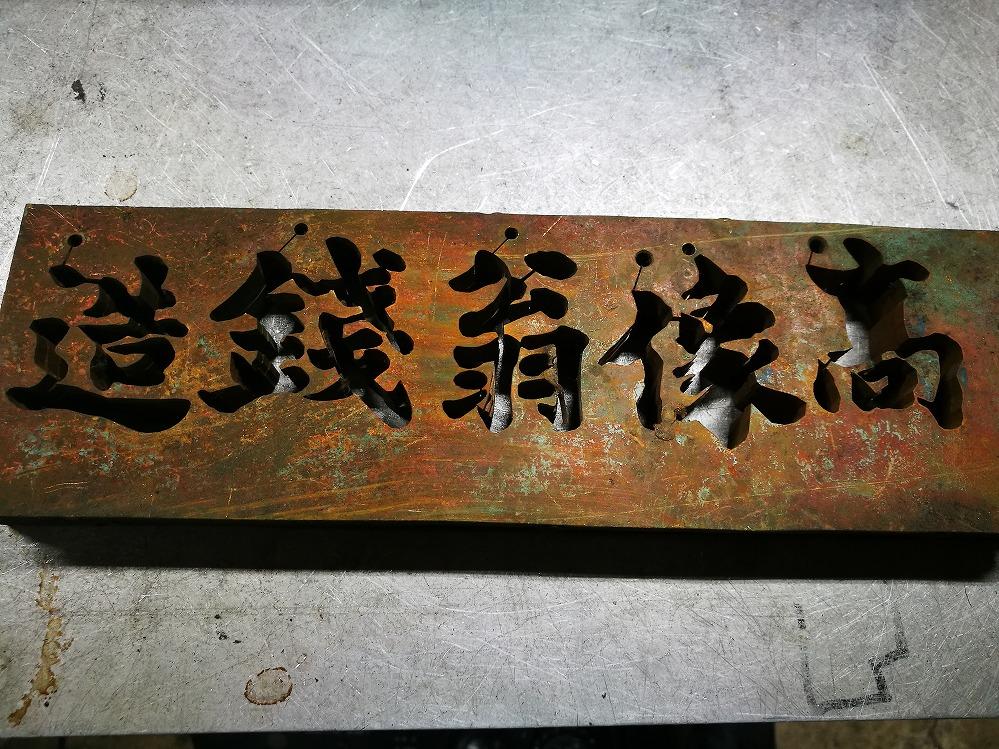 高像翁錢造